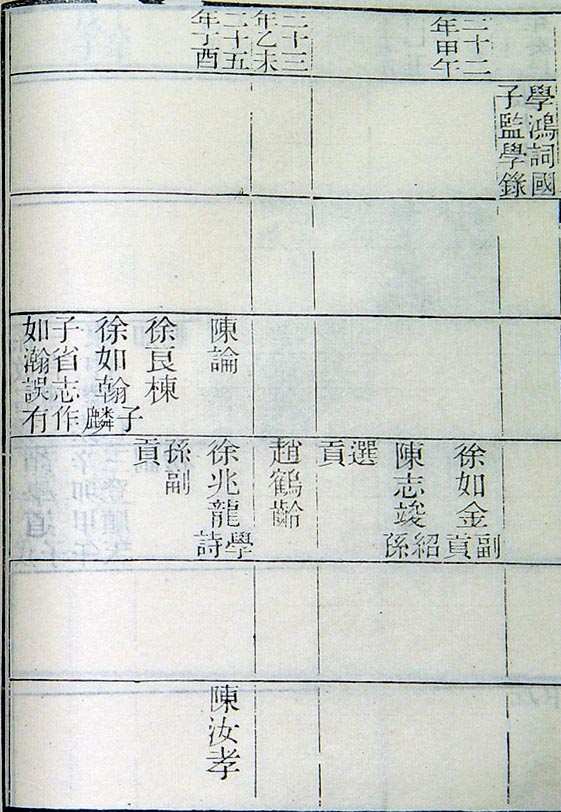 二十二
年甲午
二十三
年乙未
二十五
年丁酉
學鴻詞國
子監學錄
陳論
徐良棟
徐如翰子麟
子省志作
如瀚誤有
徐如金副貢
陳志竣紹孫
選
貢
趙鶴齡
徐兆龍學詩
孫副
貢
陳汝孝